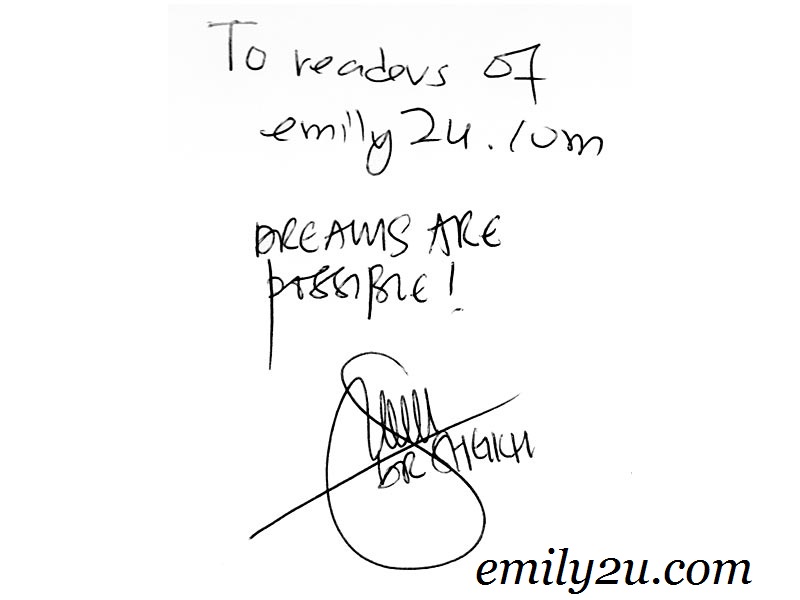 To readers of
emily2u.com
DREAMS ARE
POSSIBLE!
DR
emily2u.com